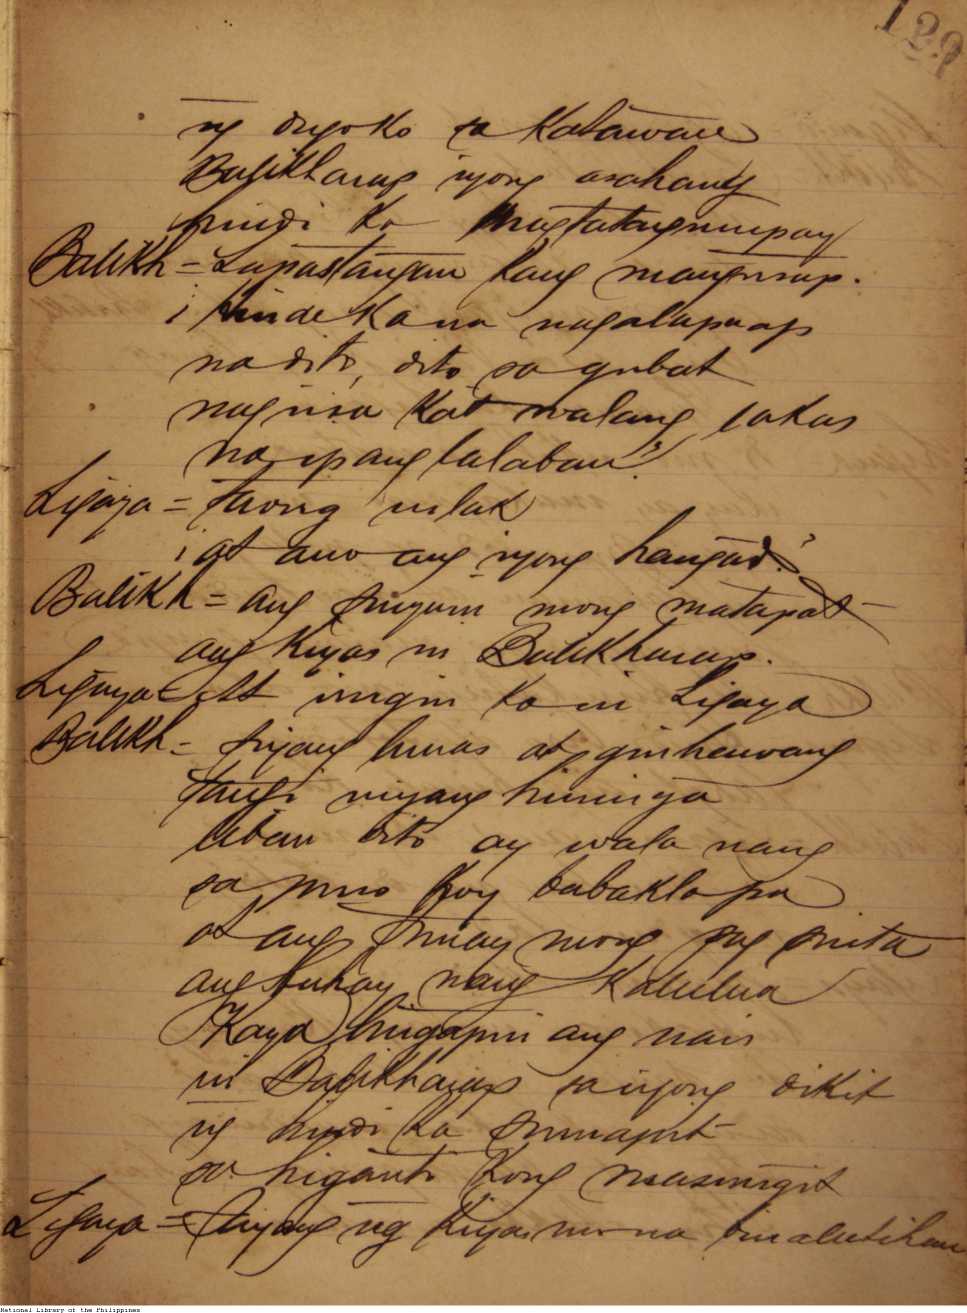 129
ng dugo ko sa Katawan
Balikharap iyong asahang
hindi ka magtatagumpay
Balikh = Lapastangan kang mangusap.
¡ Hinde ka na nagalapaap
na dito, dito sa gubat
nag iisa ka't walang lakas
na ipang lalaban?
Ligaya = Taong ulak
¡ at ano ang iyong hangad?
Balikh = ang mong matapat
ang Kiyas ni Balikharap.
Ligaya = At inigin ka ni Ligaya
Balikh = siyang lunas at ginhawang
tangi niyang hininga
liban dito ay wala nang
sa puso koy babakla pa
at ang mong pag sinta
ang buhay nang Kalulua
Kaya ang nais
ni Balikharap sa iyong dikit
ng hindi ka sumapit
sa higanti kong masungit
Ligaya = ng Kiyas mo na binalutihan
National Library of the Philippines